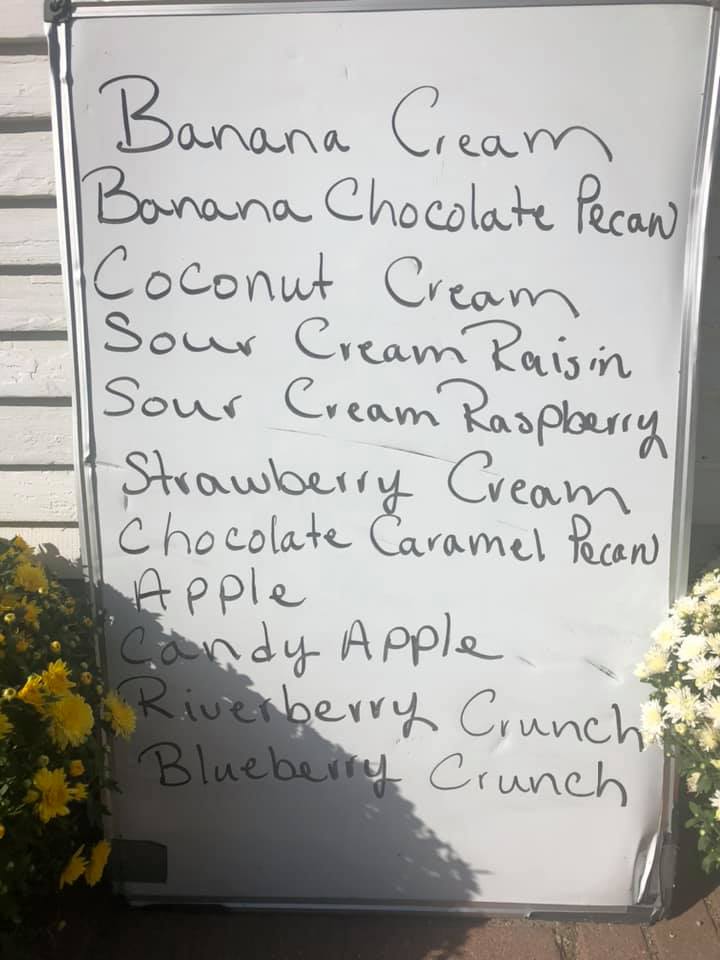 Banana Cream
Banana Chocolate Pecan
Coconut Cream
Sour Cream Raisin
Sour Cream Raspberry
Strawberry Cream
Chocolate Caramel Pecan
Apple
Candy Apple
Riverberry Crunch
Blueberry Crunch